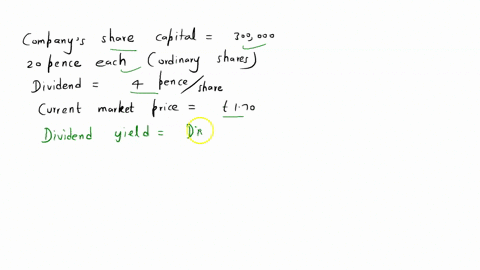 Company's share capital = 300,000
20 pence each (ordinary shares)
Dividend = 4 pence/share
Current market price = £1.70
Dividend yield = Di